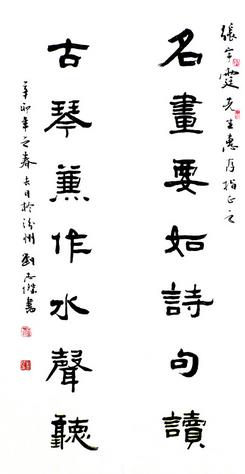 張宇霆先生惠存指正之
名畫要如詩句讀
古琴兼作水聲聽
辛卯年之春 吉日於汾州 劉志傑書